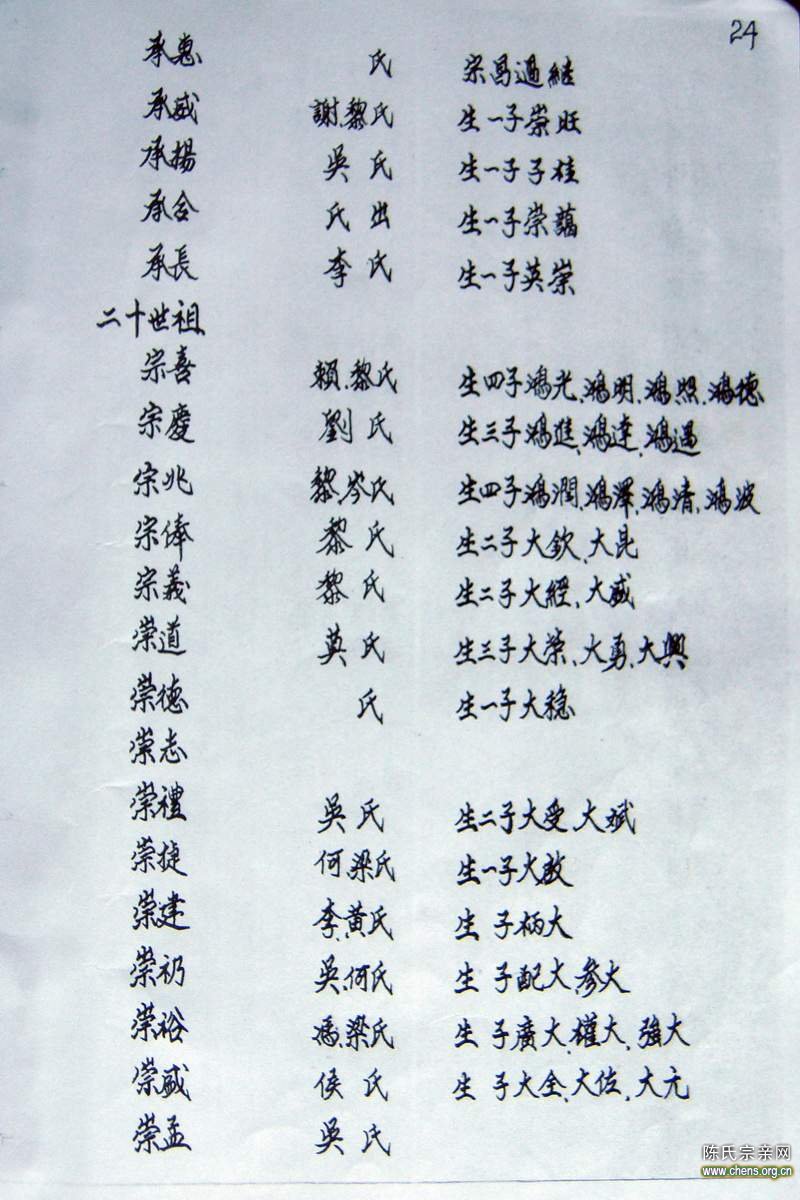 24
承惠 氏 宗昌過繼
承威 謝、黎氏 生一子崇旺
承揚 吳氏 生一子子桂
承合 氏出 生一子崇藹
承長 李氏 生一子英崇
二十世祖
宗喜 賴、黎氏 生四子鴻光、鴻明、鴻照、鴻德
宗慶 劉氏 生三子鴻進、鴻達、鴻遇
宗兆 黎、岑氏 生四子鴻潤、鴻澤、鴻清、鴻波
宗俸 黎氏 生二子大欽、大昆
宗義 黎氏 生二子大經、大威
崇道 莫氏 生三子大榮、大勇、大興
崇德 氏 生一子大稳
崇志
崇禮 吳氏 生二子大受、大斌
崇捷 何、梁氏 生一子大啟
崇建 李、黃氏 生 子柄大
崇礽 吳、何氏 生 子配大、參大
崇裕 馮、梁氏 生 子廣大、權大、強大
崇威 侯氏 生 子大全、大佐、大元
崇孟 吳氏
陈氏宗亲网
www.chens.org.cn